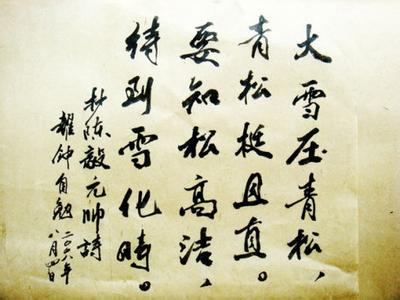 大雪压青松、
青松挺且直。
要知松高洁、
待到雪化時。
抄陈毅元帅詩
耀钟自勉
二〇〇八年
八月四日